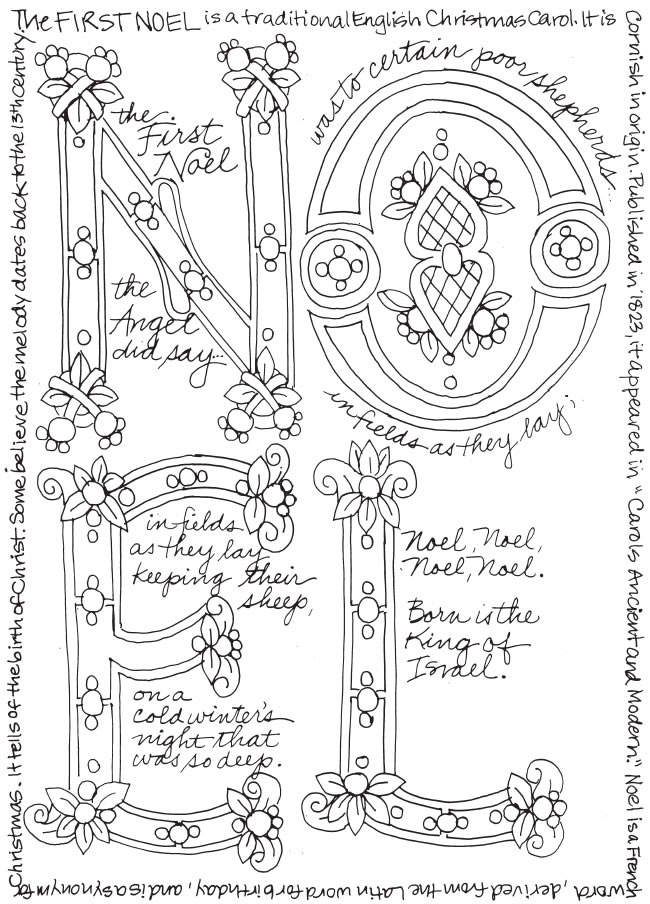 The FIRST NOEL is a traditional English Christmas Carol. It is
Cornish in origin. Published in 1823, it appeared in "Carols Ancient and Modern." Noel is a French
word, derived from the Latin word for birthday, and is a synonym for
Christmas. It tells of the birth of Christ. Some believe the melody dates back to the 13th century.
NO
EL
the
First
Noel
the
Angel
did say...
was to certain poor shepherds...
in fields as they lay;
in fields
as they lay
keeping their
sheep,
on a
cold winter's
night that
was so deep.
Noel, Noel,
Noel, Noel.
Born is the
King of
Israel.